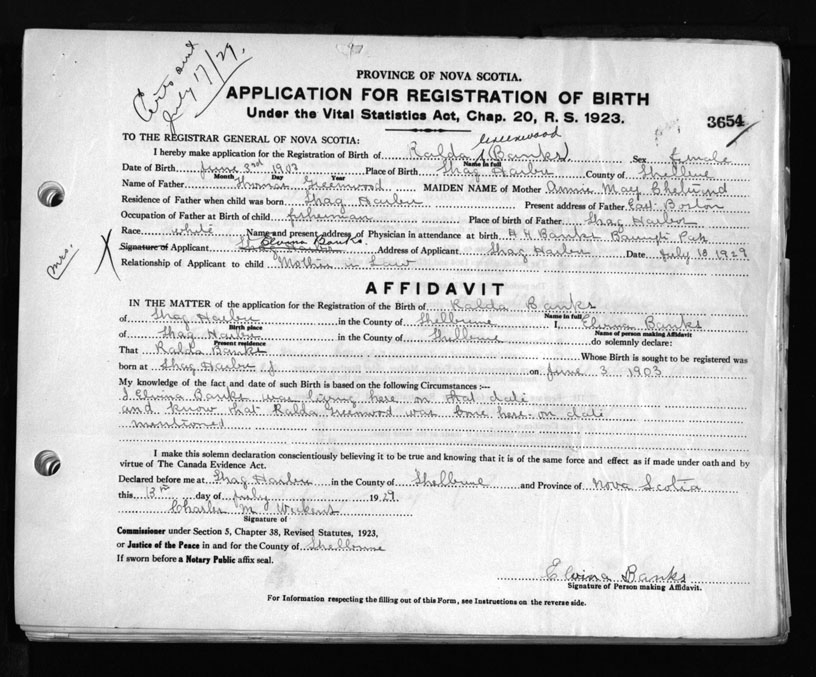 Certs sent
July 17/29.
PROVINCE OF NOVA SCOTIA.
APPLICATION FOR REGISTRATION OF BIRTH
Under the Vital Statistics Act, Chap. 20, R. S. 1923.
3654
TO THE REGISTRAR GENERAL OF NOVA SCOTIA:
Greenwood
I hereby make application for the Registration of Birth of Ralda (Banks) Sex female
Name in full
Date of Birth June 3rd 1903 Place of Birth Shag Harbor County of Shelburne
Month Day Year
Name of Father Thomas Greenwood MAIDEN NAME of Mother Annie May
Residence of Father when child was born Shag Harbor Present address of Father East Boston
Occupation of Father at Birth of child fisherman Place of birth of Father Shag Harbor
Race white Name and present address of Physician in attendance at birth H H Banks
Signature of Applicant Elvina Banks Address of Applicant Shag Harbor Date July 10 1929
Mrs.
X
Relationship of Applicant to child Mother in Law
AFFIDAVIT
IN THE MATTER of the application for the Registration of the Birth of Ralda Banks
Name in full
of Shag Harbor in the County of Shelburne I, Elvina Banks
Birth place Name of person making Affidavit
of Shag Harbor in the County of Shelburne do solemnly declare:
Present residence
That Ralda Banks Whose Birth is sought to be registered was
born at Shag Harbor on June 3 1903
My knowledge of the fact and date of such Birth is based on the following Circumstances :—
I Elvina Banks was living here on that date
and know that Ralda Greenwood was born here on date
mentioned
I make this solemn declaration conscientiously believing it to be true and knowing that it is of the same force and effect as if made under oath and by
virtue of The Canada Evidence Act.
Declared before me at Shag Harbor in the County of Shelburne and Province of Nova Scotia
this 13th day of July 1929
Charles M
Signature of
Commissioner under Section 5, Chapter 38, Revised Statutes, 1923,
or Justice of the Peace in and for the County of Shelburne
If sworn before a Notary Public affix seal.
Elvina Banks
Signature of Person making Affidavit.
For Information respecting the filling out of this Form, see Instructions on the reverse side.